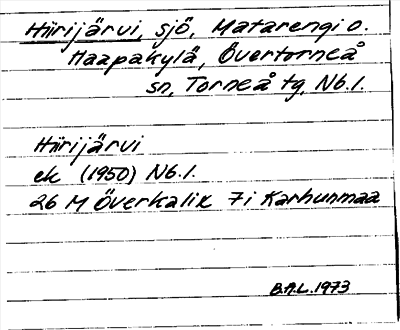 Hiirijärvi, sjö, Matarengi o.
Haapakylä, Övertorneå
sn, Torneå tg, Nb.l.
Hiirijärvi
ek (1950) Nb.l.
26 M Överkalix 7i Karhunmaa
B.A.L. 1973